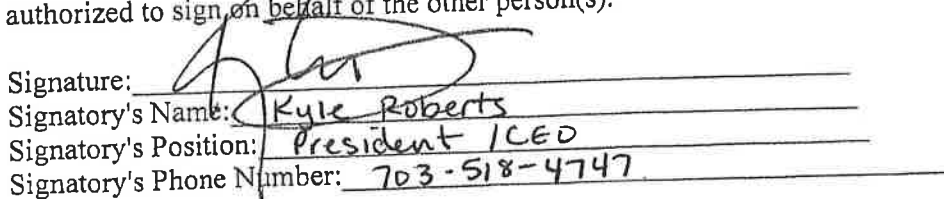 authorized to sign on behalf of the other person(s).
Signature:
Signatory's Name: Kyle Roberts
Signatory's Position: President / CEO
Signatory's Phone Number: 703-518-4747